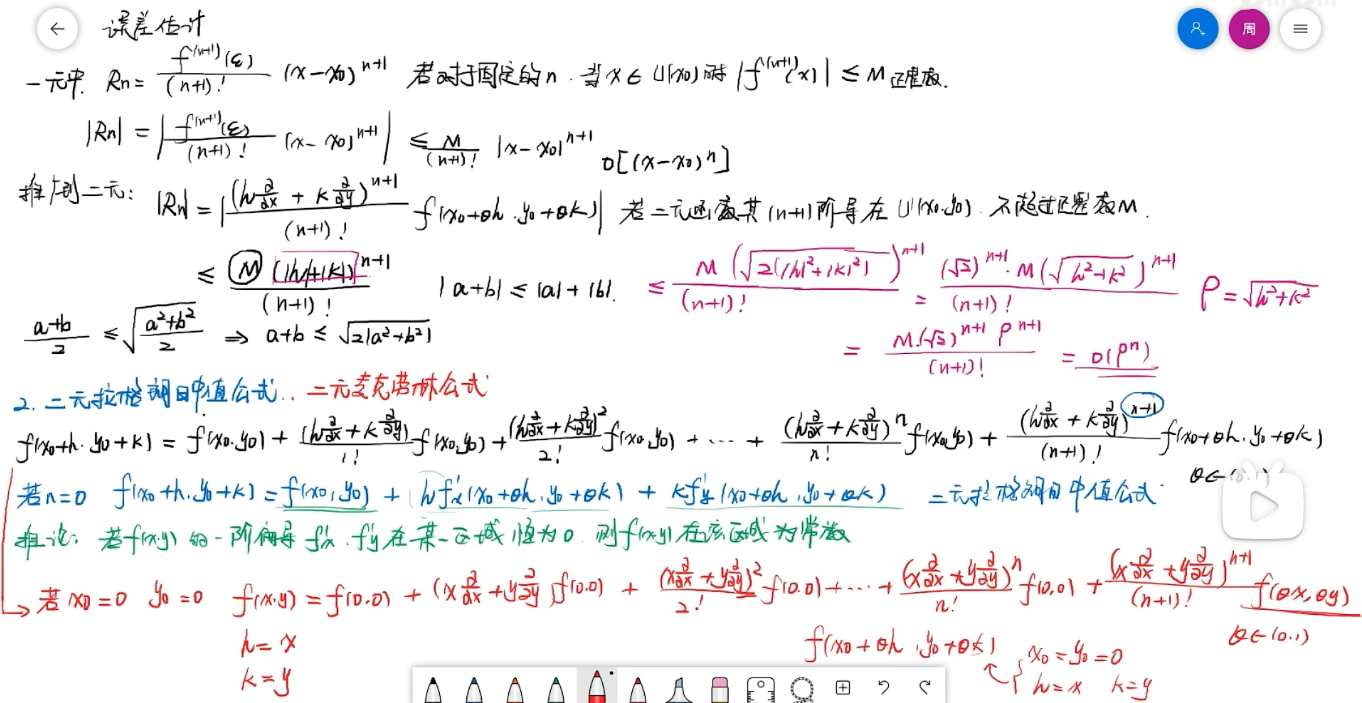 误差估计
周
一元中. Rn = \frac{f^{(n+1)}(ε)}{(n+1)!} (x-x₀)^{n+1} 若对于固定的n. 当x∈U(x₀)时 |f^{(n+1)}(x)| ≤ M 正常数.
|Rn| = |\frac{f^{(n+1)}(ε)}{(n+1)!} (x-x₀)^{n+1}| ≤ \frac{M}{(n+1)!} |x-x₀|^{n+1} o[(x-x₀)^n]
推广到二元: |Rn| = |\frac{(h\frac{∂}{∂x} + k\frac{∂}{∂y})^{n+1}}{(n+1)!} f(x₀+θh, y₀+θk)| 若二元函数其(n+1)阶导在U(x₀,y₀). 不超过正常数M.
≤ \frac{M(|h|+|k|)^{n+1}}{(n+1)!} |a+b| ≤ |a|+|b|. ≤ \frac{M(\sqrt{2(|h|²+|k|²)})^{n+1}}{(n+1)!} = \frac{(√2)^{n+1}·M(\sqrt{h²+k²})^{n+1}}{(n+1)!} ρ=\sqrt{h²+k²}
\frac{a+b}{2} ≤ \sqrt{\frac{a²+b²}{2}} ⇒ a+b ≤ \sqrt{2(a²+b²)}
= \frac{M.(√2)^{n+1} ρ^{n+1}}{(n+1)!} = o(ρ^n)
2. 二元拉格朗日中值公式.. 二元麦克劳林公式
f(x₀+h, y₀+k) = f(x₀,y₀) + \frac{(h\frac{∂}{∂x}+k\frac{∂}{∂y})}{1!} f(x₀,y₀) + \frac{(h\frac{∂}{∂x}+k\frac{∂}{∂y})²}{2!} f(x₀,y₀) + ··· + \frac{(h\frac{∂}{∂x}+k\frac{∂}{∂y})^n}{n!} f(x₀,y₀) + \frac{(h\frac{∂}{∂x}+k\frac{∂}{∂y})^{n+1}}{(n+1)!} f(x₀+θh, y₀+θk)
θ∈(0,1)
若n=0 f(x₀+h, y₀+k) = f(x₀,y₀) + hf'x(x₀+θh, y₀+θk) + kf'y(x₀+θh, y₀+θk) 二元拉格朗日中值公式.
推论: 若f(x,y)的一阶偏导f'x. f'y在某一区域恒为0. 则f(x,y)在该区域为常数
若x₀=0 y₀=0 f(x,y) = f(0,0) + (x\frac{∂}{∂x}+y\frac{∂}{∂y})f(0,0) + \frac{(x\frac{∂}{∂x}+y\frac{∂}{∂y})²}{2!} f(0,0) + ··· + \frac{(x\frac{∂}{∂x}+y\frac{∂}{∂y})^n}{n!} f(0,0) + \frac{(x\frac{∂}{∂x}+y\frac{∂}{∂y})^{n+1}}{(n+1)!} f(θx,θy)
θ∈(0,1)
h=x
k=y
f(x₀+θh, y₀+θk)
x₀=y₀=0
h=x k=y